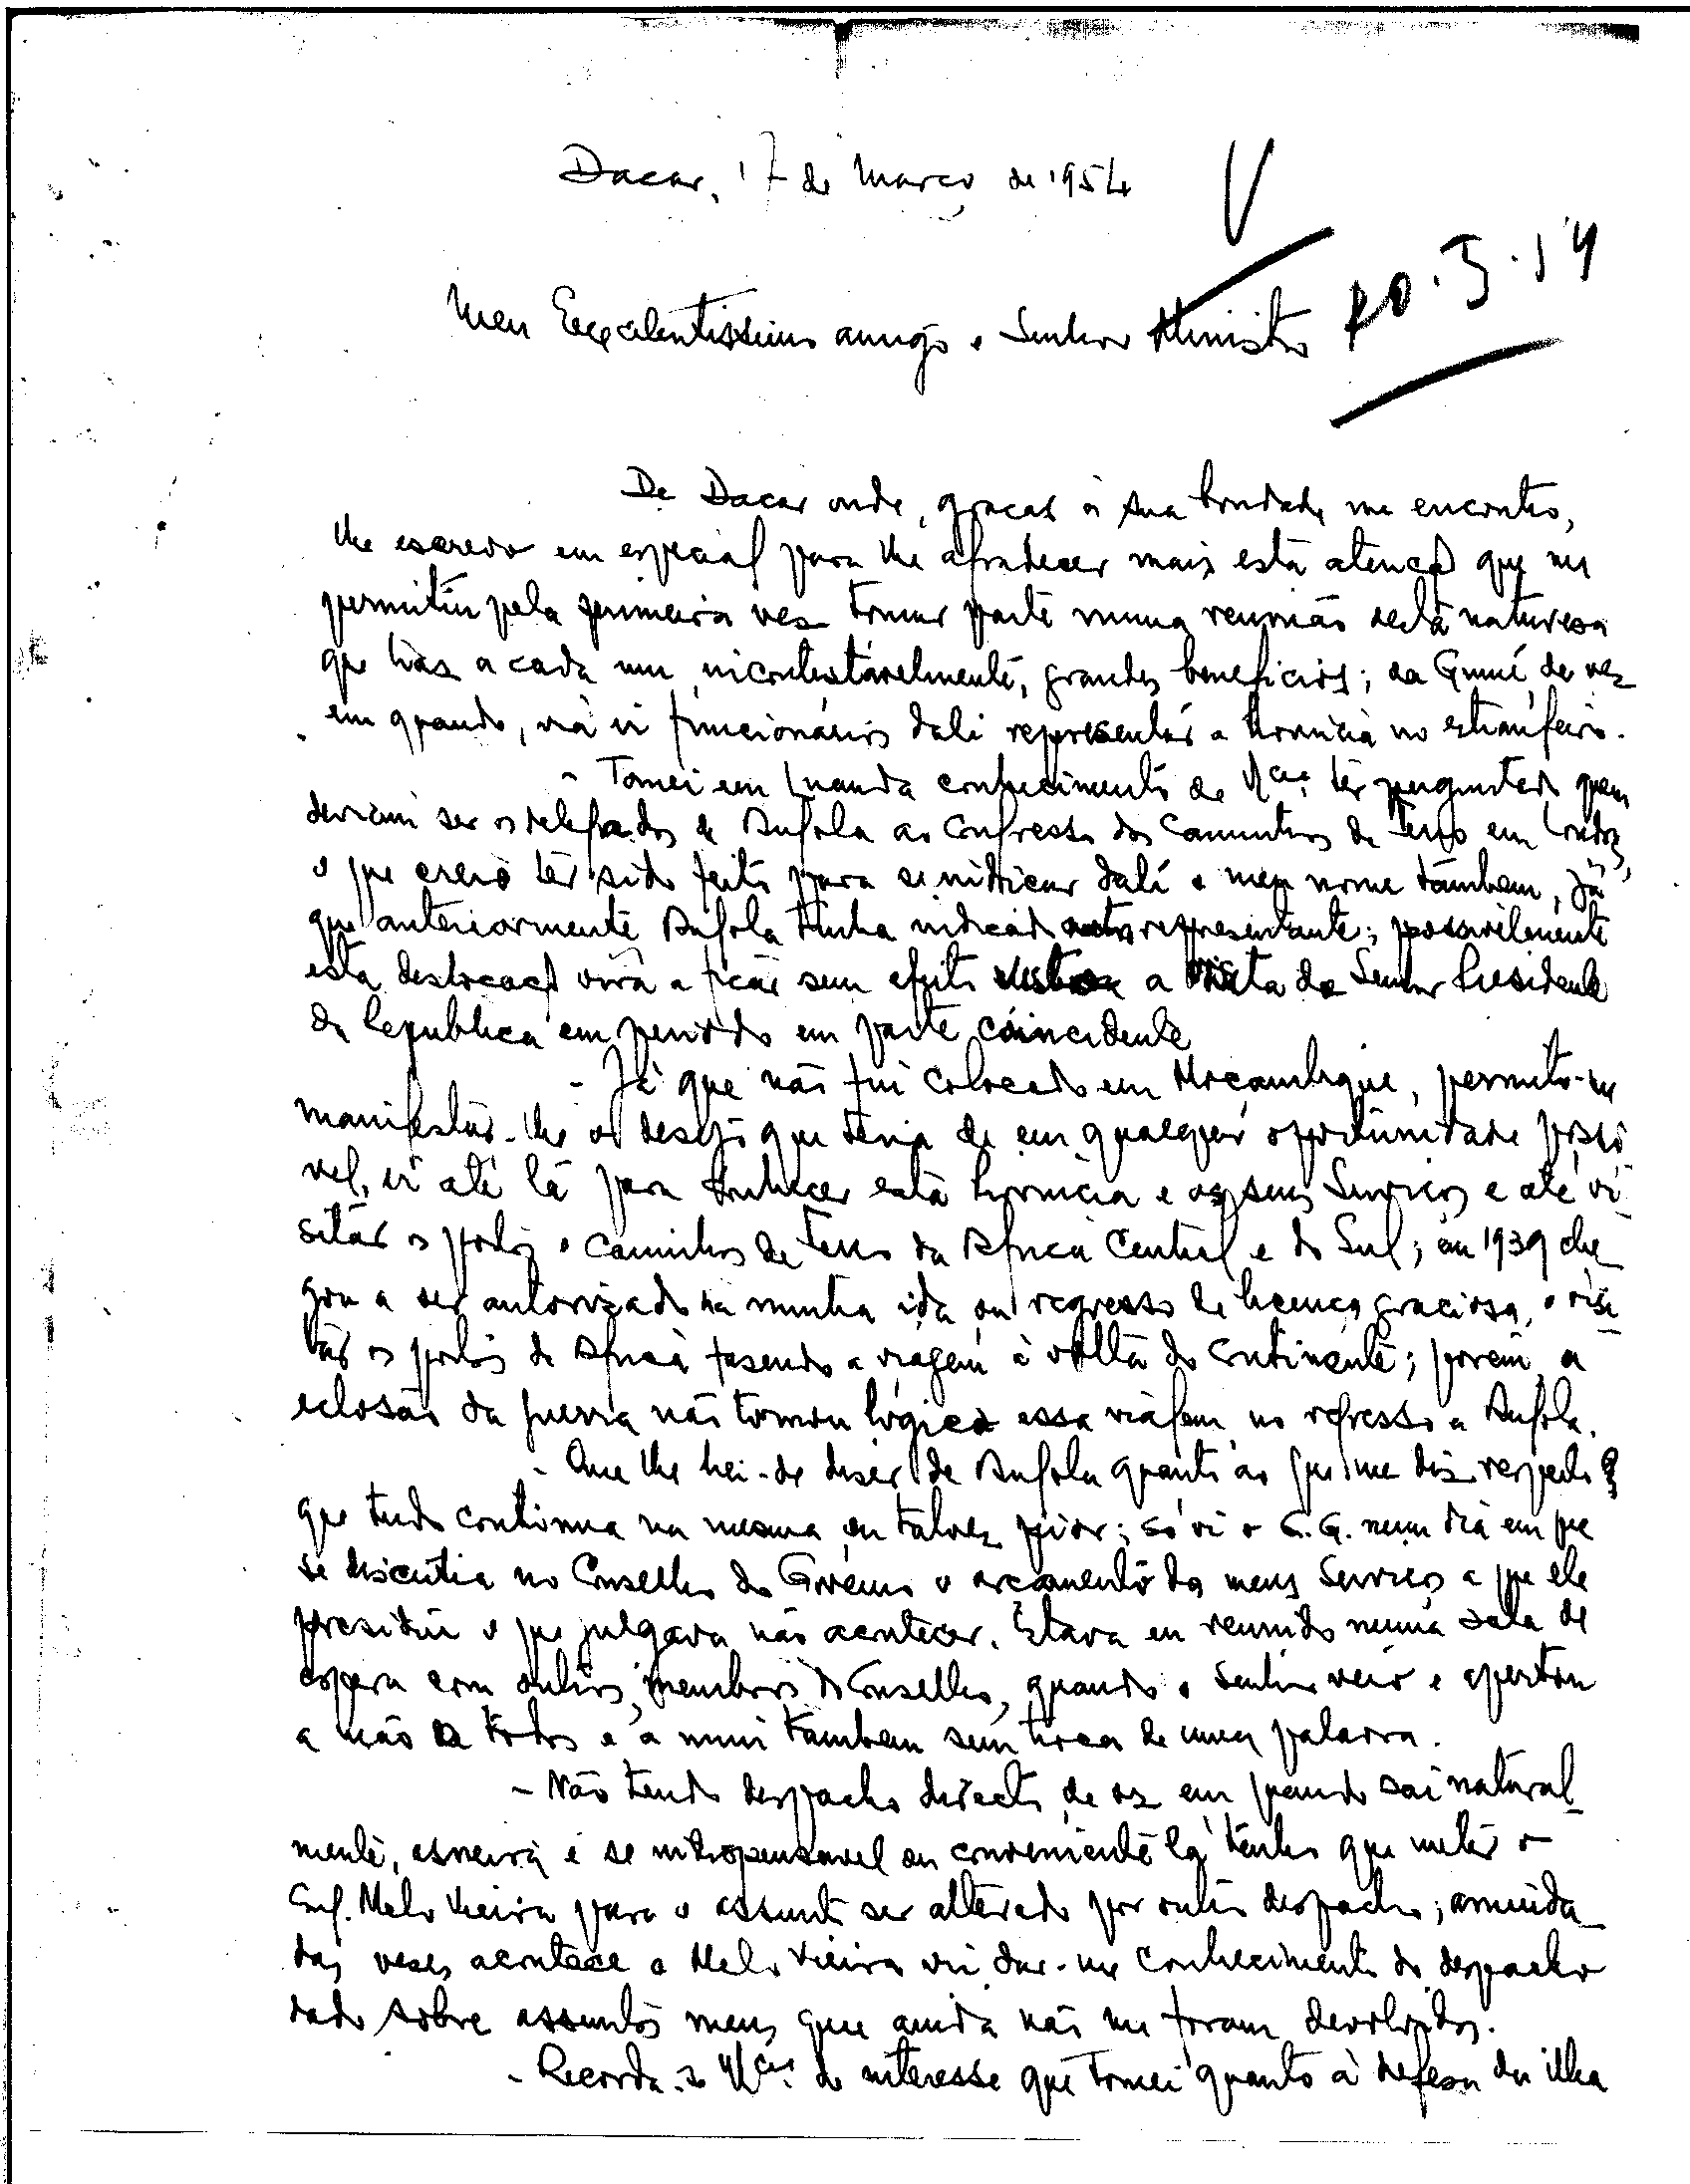 Dacar, 17 de Março de 1954
V
Meu Excelentissimo amigo e Senhor Ministro
De Dacar onde, graças á sua bondade me encontro,
lhe escrevo em especial para lhe agradecer mais esta atenção que me
permitiu pela primeira vez tomar parte numa reunião desta naturesa
que tras a cada um, incontestávelmente, grandes beneficios; da Guiné, de vez
em quando, vá vi funcionários dali representár a Provincia no estrangeiro.
- Tomei em Luanda conhecimento de V.cia ter perguntado quem
deviam ser os delegados de Angola ao Congresso dos Caminhos de Ferro em Londres,
o que creio ter sido feito para se indicar dali o meu nome tambem, já
que anteriormente Angola tinha indicado outro representante; possivelmente
esta deslocação virá a ficar sem efeito a visita do Senhor Presidente
da Republica em periodo em parte coincidente
- Já que não fui colocado em Moçambique, permito-me
manifestar-lhe o desejo que teria de em qualquer oportunidade possi
vel, ir até lá para conhecer esta Provincia e os seus Serviços e até vi
sitár os portos e Caminhos de Ferro da Africa Central e do Sul; em 1939 che
gou a ser autorizado na minha ida ou regresso de licença graciosa, o visi
tár os portos de Africa fasendo a viagem á volta do Continente; porém, a
eclosão da guerra não tornou lógica essa viagem no regresso a Angola.
- Que lhe hei-de diser de Angola quanto ao que me diz respeito?
que tudo continua na mesma ou talvez pior; só vi o G.G. num dia em que
se discutia no Conselho do Govêrno o orçamento dos meus Serviços a que ele
presidiu o que julgava não acontecer. Estava eu reunido numa sala de
espera com outros membros do Conselho, quando o Senhor veio e apertou
a mão a todos e a mim tambem sem troca de uma palavra.
- Não tendo despacho directo, de vez em quando sai natural
mente, asneira e se indispensavel ou conveniente lá tenho que metêr o
Eng. Melo Vieira para o assunto ser alterado por outro despacho; amiuda
das veses acontece o Melo Vieira vir dar-me conhecimento do despacho
dado sobre assuntos meus que ainda não me foram devolvidos.
- Recorda-se V.cia do interesse que tomei quanto á defesa da ilha